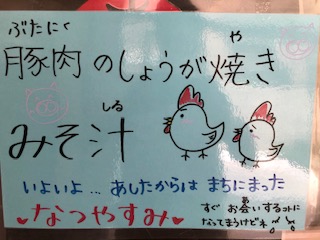 ぶたにく
豚肉のしょうが焼き
や
みそ汁
しる
いよいよ... あしたからは まちにまった
なつやすみ
すぐ お会いするコトに
あ
なってまうけどネ